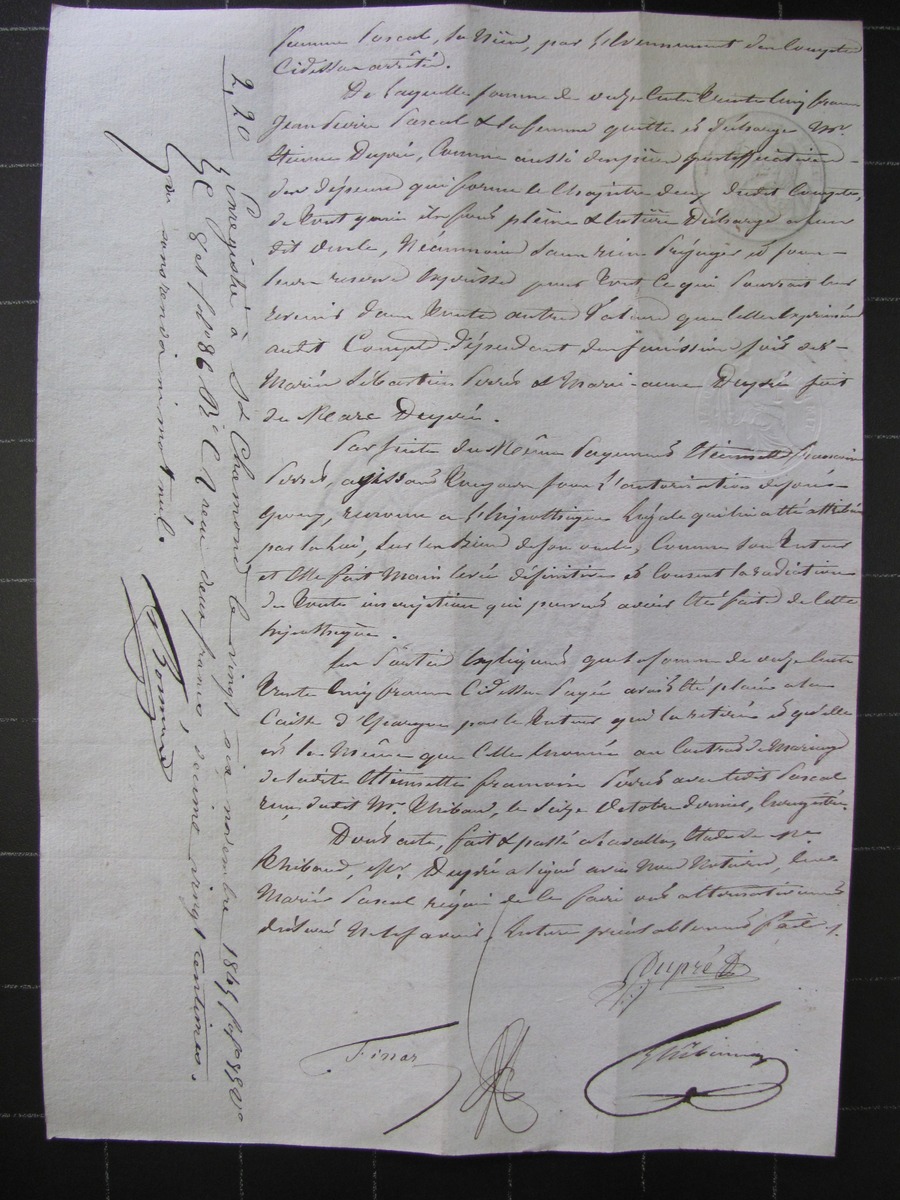 femme Pascal, la Niece, par l'evennement du Compte
Cidessus arrêté.
De laquelle somme de onze Cents trente Cinq francs
Jean Pierre Pascal & sa femme quitte et décharge Mr.
Etienne Dupré, Comme aussi des pièces justificatives
des dépenses qui forme le Chapitre deux dudit Compte,
de tout quoi ils font pleine & Entière Décharge
dit oncle, Néanmoins Sans rien Préjuger et sous
leurs reserve Expresse pour tout Ce qui Pourrait leur
revenir d'une toute autre Valeur que Celles Exprimées
audit Compte Dépendant des successions soit des
Mariés Sébastien Perres & Marie-anne Dupré soit
de Marc Dupré.
Par suite du Même Payement Etiennette françoise
Perres, agissant toujours sous l'autorisation de son
Epoux, renonce a l'hipothèque Légale qui lui a été attribuée
par la Loi, sur les Biens de son oncle, Comme son tuteur
et Elle fait Main levée définitive et Consent la radiation
de toute inscription qui pourrait avoir Eté faite de Cette
hipothèque.
Les Parties Expliquent que la somme de onze Cents
trente Cinq francs Cidessus Payée avait Eté placée a la
Caisse d'Epargne par le tuteur qui l'a retirée et qu'elle
est la Même que Celle Enoncée au Contrat de Mariage
de ladite Etiennette françoise Perres avec ledit Pascal
reçu dudit Me. Thibaud, le Seize Octobre dernier, Enregistré.
Dont acte, fait & passé a Cavallon, Etude de Me
Thibaud, Mr. Dupré a signé avec Nous Notaires, les
Mariés Pascal requis de le faire ont alternativement
déclaré Ne le savoir. Lecture préalablement faite.
Dupré
Finaz
2,20 Enregistré à St Chamond le vingt six novembre 1845 fo 85 Vo
C. 7 et fo 86 Ro C. 1. reçu deux francs, décime vingt centimes.